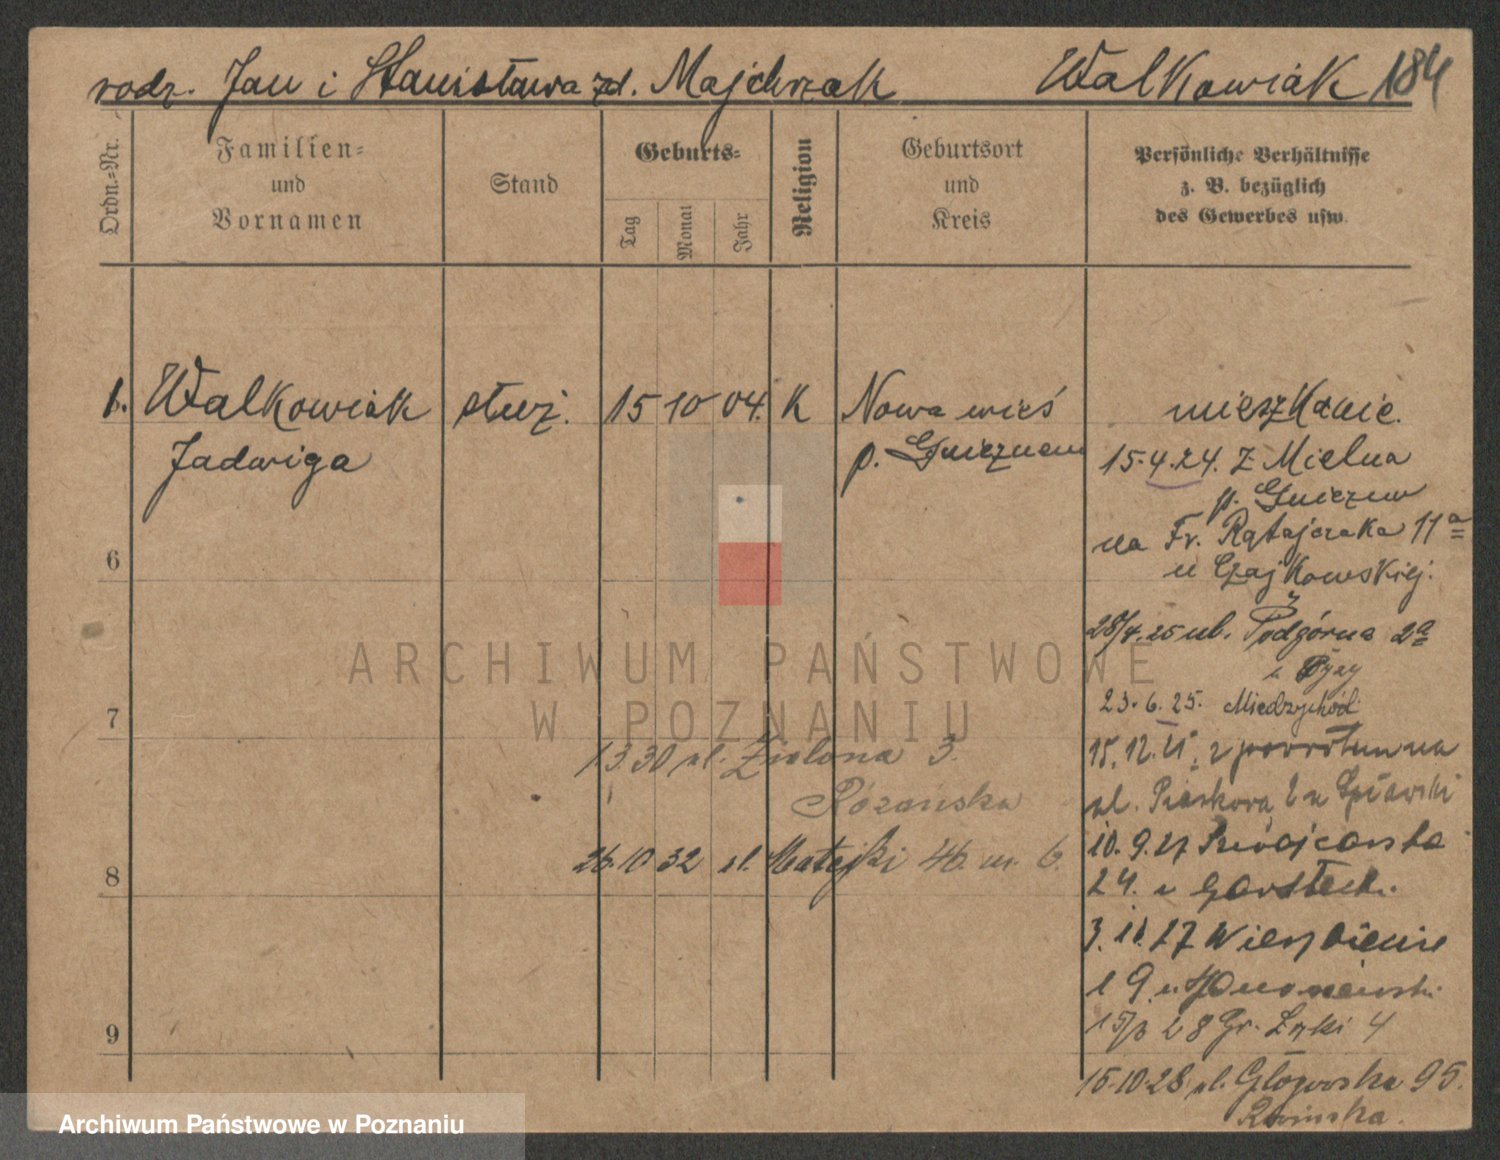 rodz. Jan i Stanisława zd. Majchrzak Walkowiak 184
Ordn.=Nr.
Familien=
und
Vornamen
Stand
Geburts=
Tag
Monat
Jahr
Religion
Geburtsort
und
Kreis
Persönliche Verhältnisse
z. B. bezüglich
des Gewerbes usw.
1. Walkowiak służ. 15 10 04. K Nowa wieś mieszkanie.
Jadwiga p. Gnieznem 15.4.24. z Mielna
p. Gniezno
na Fr. Ratajczaka 11a
u Czajkowskiej.
6
28/4.25 ul. Podgórna 2a
23.6.25. Miedzychód
7
15.12. z powrotem na
13.30 ul. Zielona 3.
ul. Piaskowa 2 u
Różańska
10.9.27
26.10 32 ul. Matejki 46. m. 6.
8
24. u
3.11.27 Wierzbięcice
19 u.
15/3 28 Gr. Łąki 4
9
15.10.28 ul. Głogowska 95.
ARCHIWUM PAŃSTWOWE
W POZNANIU
Archiwum Państwowe w Poznaniu